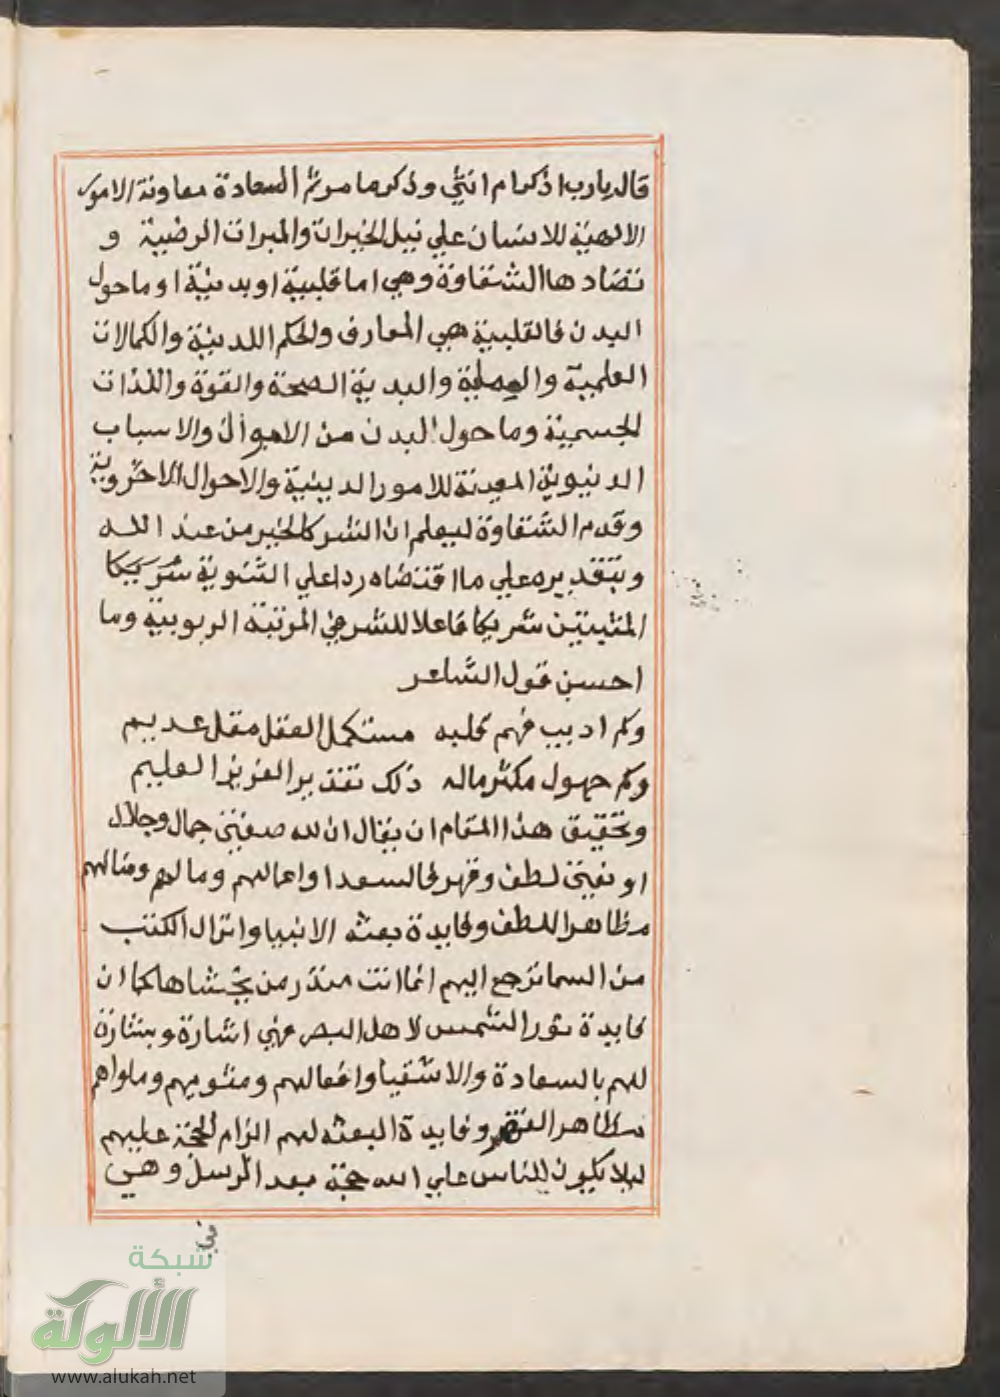 قال يا رب اذكر ام انثي وذكرهما مرتم السعادة معاونة الامور
الالهية للانسان علي نيل الخيرات والمبرات الرضية و
تضادها الشقاوة وهي اما قلبية او بدنية او ما حول
البدن فالقلبية هي المعارف والحكم اللدنية والكمالات
العلمية والعملية والبدنية الصحة والقوة واللذات
الجسمية وما حول البدن من الاموال والاسباب
الدنيوية المعينة للامور الدينية والاحوال الاخروية
وقدم الشقاوة ليعلم ان الشر كالخير من عند الله
وبتقديره علي ما اقتضاه ردا علي الثنوية شريكا
المثبتين شريكا فاعلا للشر في المرتبة الربوبية وما
احسن قول الشاعر
وكم اديب فهم قلبه مستكمل العقل مقل عديم
وكم جهول مكثر ماله ذلك تقدير العزيز العليم
وتحقيق هذا المقام ان يقال ان لله صفتين جمال وجلال
او نعتين لطف وقهر فالسعدا واعمالهم وما لهم ومنالهم
مظاهر اللطف وفايدة بعثه الانبيا وانزال الكتب
من السما ترجع اليهم انما انت منذر من يخشاها كما ان
فايدة نور الشمس لاهل البصر فهي اشارة وبشارة
لهم بالسعادة والاشقيا وافعالهم ومثويهم وماواهم
مظاهر القهر وفايدة البعثه لهم الزام الحجة عليهم
ليلا يكون للناس علي الله حجة بعد الرسل وهي
شبكة
الألوكة
www.alukah.net